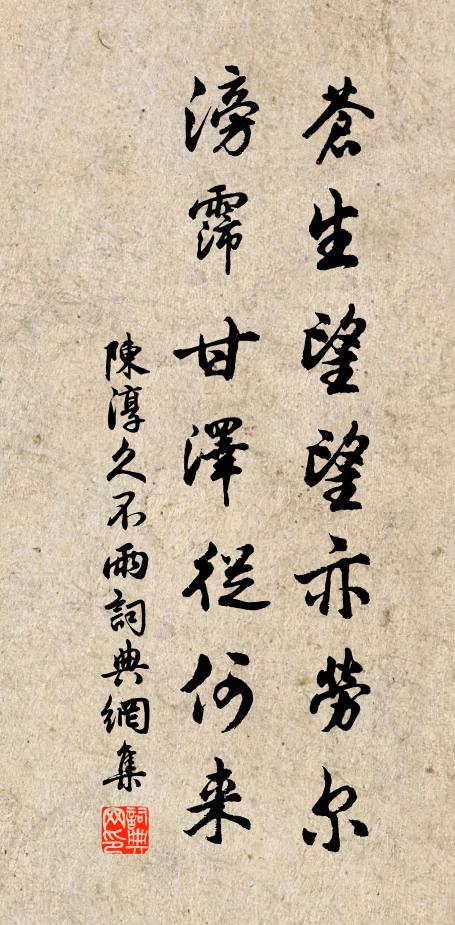 蒼生望望亦勞尔
滂霈甘澤從何来
陳淳久不雨詞典網集
詞典
网印